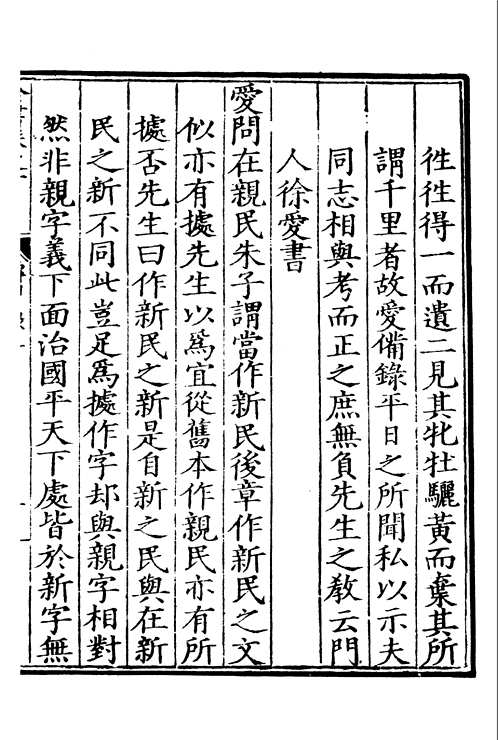 徃徃得一而遺二見其牝牡驪黃而棄其所
謂千里者故愛備錄平日之所聞私以示夫
同志相與考而正之庶無負先生之教云門
人徐愛書
愛問在親民朱子謂當作新民後章作新民之文
似亦有據先生以爲宜從舊本作親民亦有所
據否先生曰作新民之新是自新之民與在新
民之新不同此豈足爲據作字却與親字相對
然非親字義下面治國平天下處皆於新字無